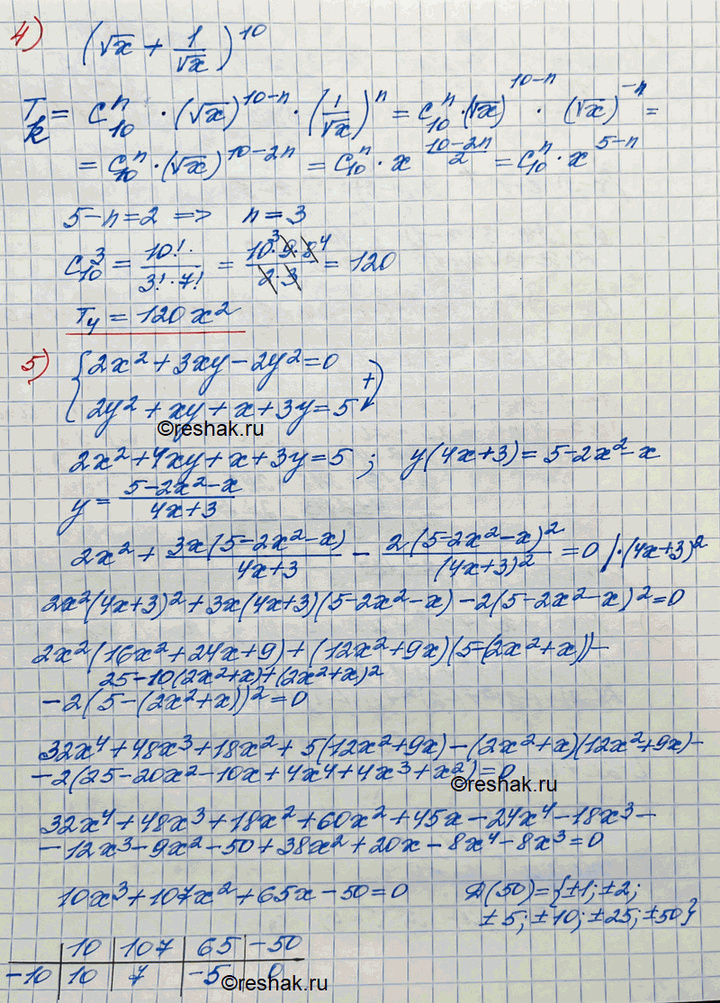 4) (√x + 1/√x)^10
T_k = C_10^n · (√x)^(10-n) · (1/√x)^n = C_10^n · (√x)^(10-n) · (√x)^(-n) =
= C_10^n · (√x)^(10-2n) = C_10^n · x^((10-2n)/2) = C_10^n · x^(5-n)
5-n=2 => n=3
C_10^3 = 10!·/(3!·7!) = 10·9·8/(2·3) = 120
3 4
T_4 = 120x²
5) { 2x² + 3xy - 2y² = 0
2y² + xy + x + 3y = 5 (+)
©reshak.ru
2x² + 4xy + x + 3y = 5 ; y(4x+3) = 5-2x²-x
y = (5-2x²-x)/(4x+3)
2x² + 3x(5-2x²-x)/(4x+3) - 2(5-2x²-x)²/(4x+3)² = 0 /·(4x+3)²
2x²(4x+3)² + 3x(4x+3)(5-2x²-x) - 2(5-2x²-x)² = 0
2x²(16x²+24x+9) + (12x²+9x)(5-(2x²+x)) -
25-10(2x²+x)+(2x²+x)²
-2(5-(2x²+x))² = 0
32x⁴+48x³+18x²+5(12x²+9x)-(2x²+x)(12x²+9x)-
-2(25-20x²-10x+4x⁴+4x³+x²)=0
©reshak.ru
32x⁴+48x³+18x²+60x²+45x-24x⁴-18x³-
-12x³-9x²-50+38x²+20x-8x⁴-8x³=0
10x³+107x²+65x-50=0 Д(50)={±1;±2;
±5;±10;±25;±50}
10 | 107 | 65 | -50
-10 | 10 | 7 | -5 | 0
©reshak.ru